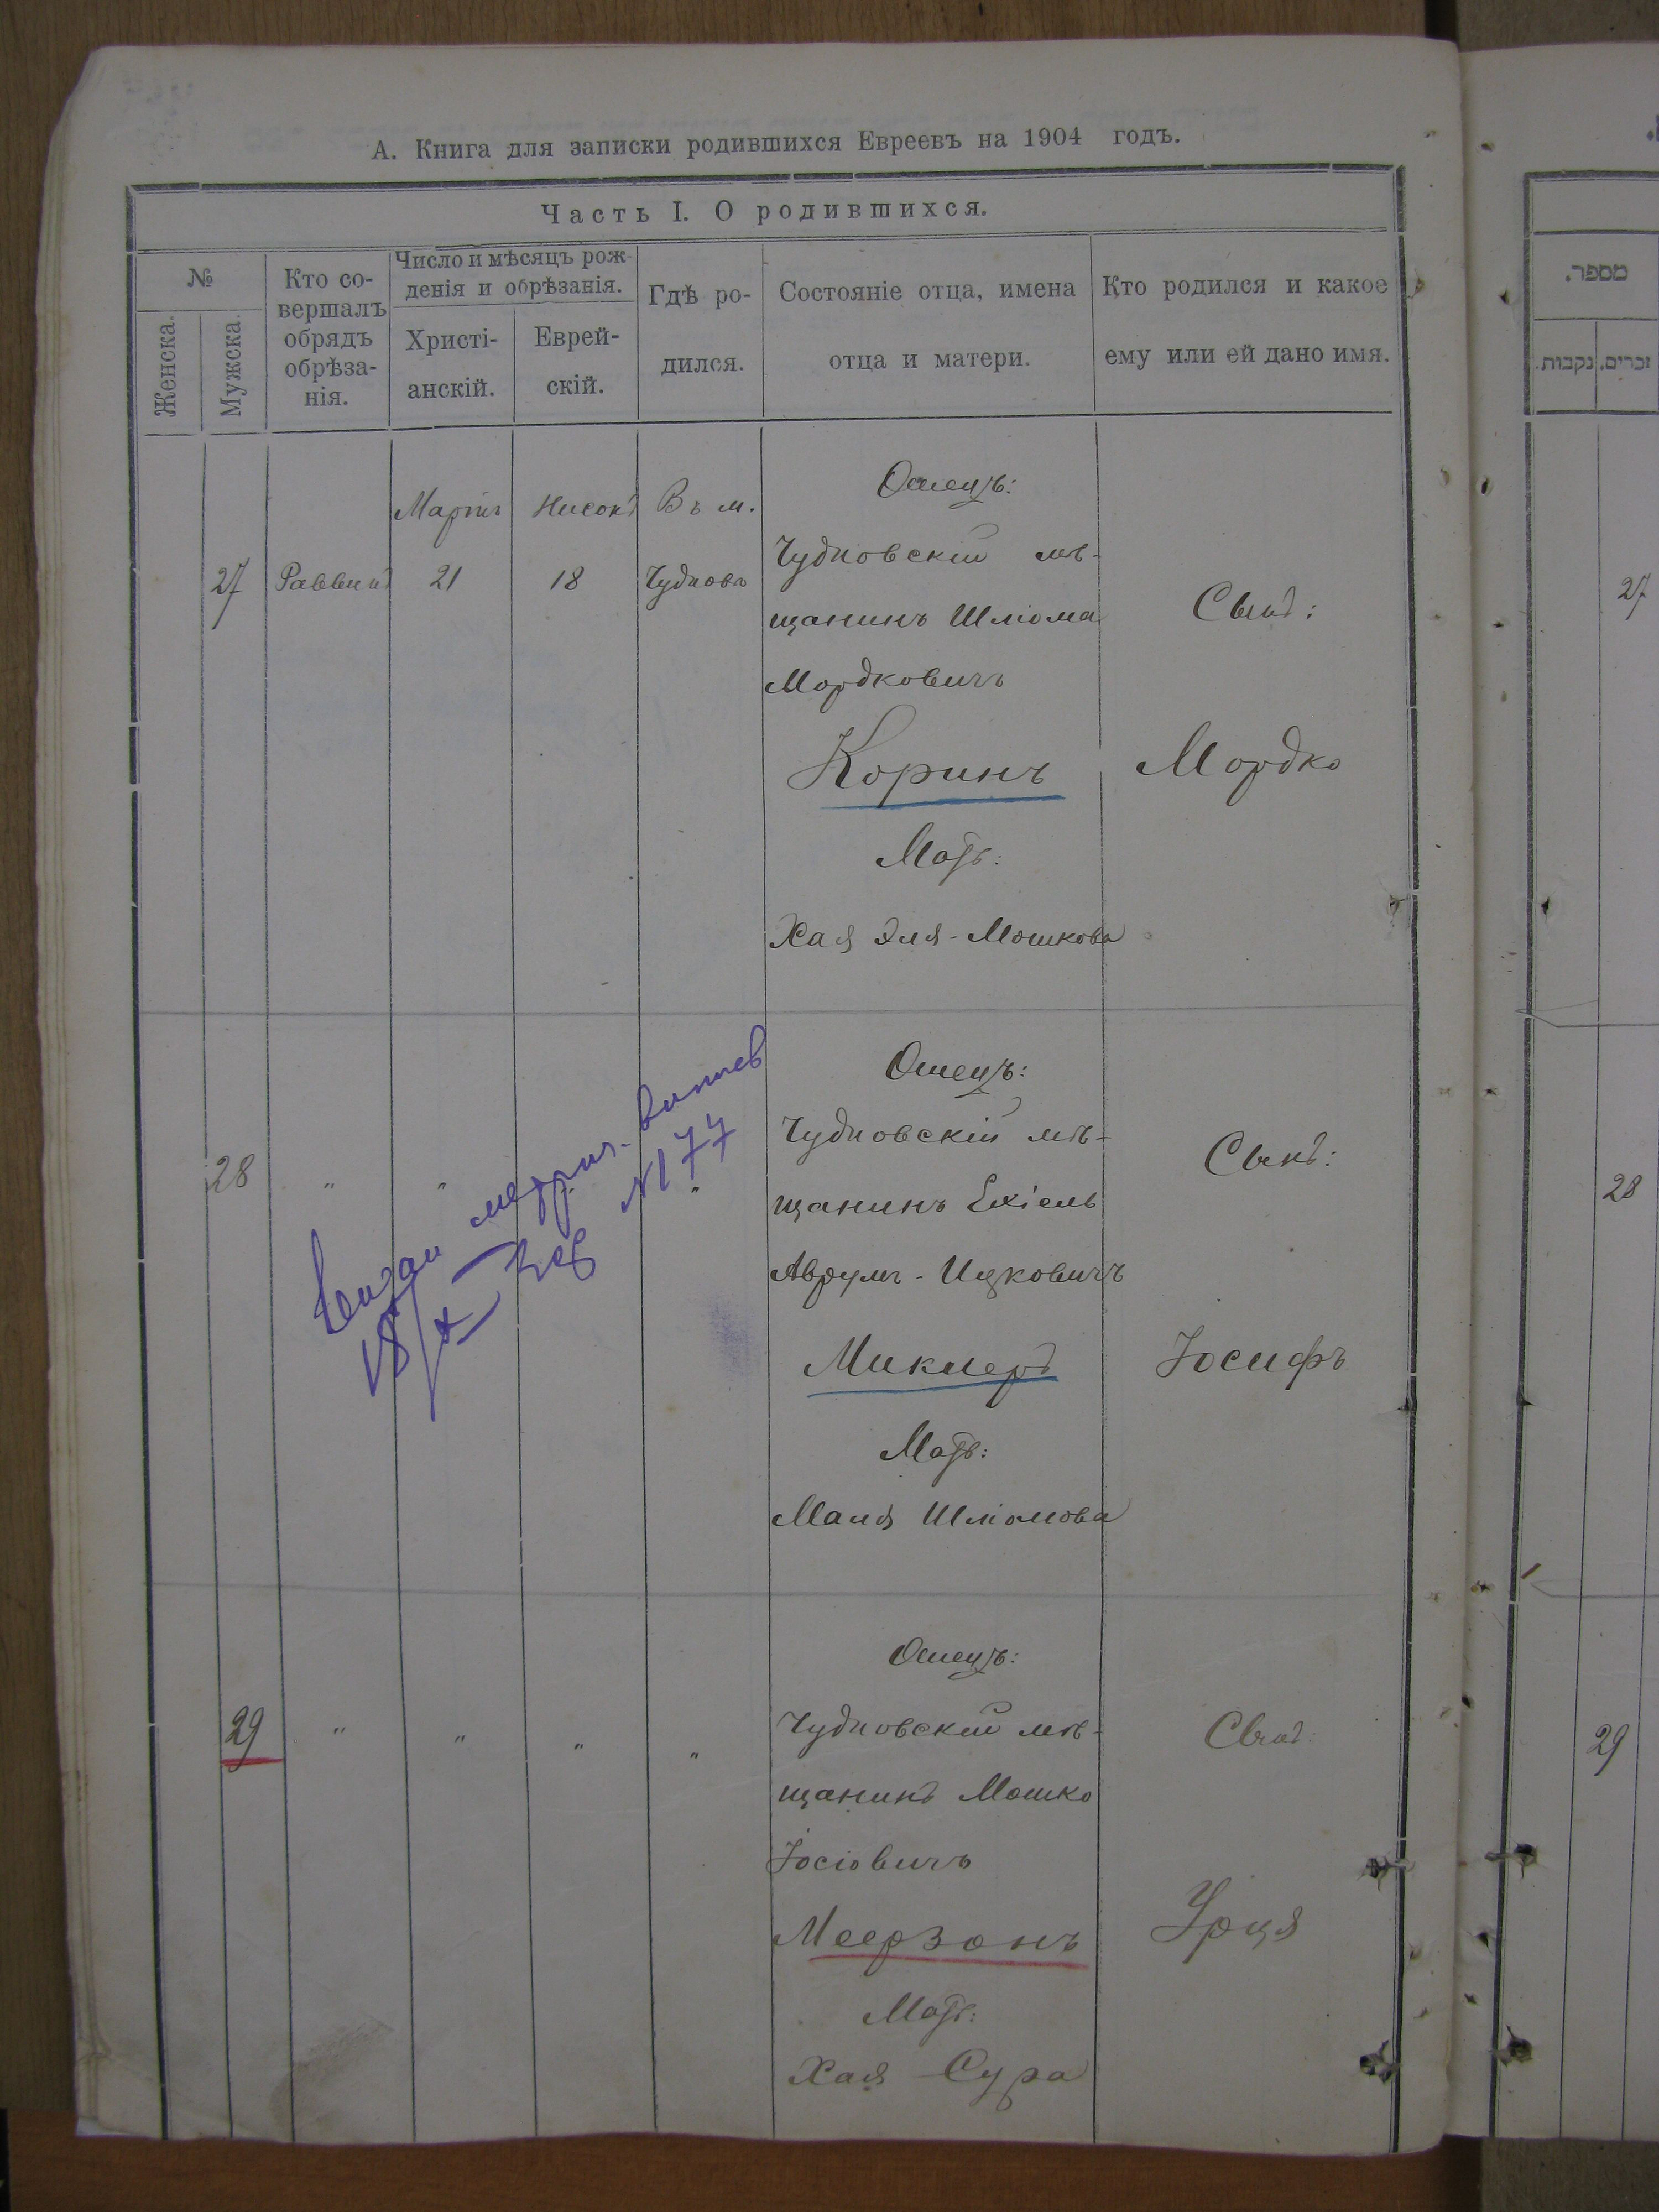 А. Книга для записки родившихся Евреевъ на 1904 годъ.
Часть I. О родившихся.
№
Женска.
Мужска.
Кто со-
вершалъ
обрядъ
обрѣза-
нія.
Число и мѣсяцъ рож-
денія и обрѣзанія.
Христі-
анскій.
Еврей-
скій.
Гдѣ ро-
дился.
Состояніе отца, имена
отца и матери.
Кто родился и какое
ему или ей дано имя.
27
Раввинъ
Мартъ
21
Нисонъ
18
Въ м.
Чудновъ
Отецъ:
Чудновскій мѣ-
щанинъ Шліома
Мордковичъ
Коринъ
Мать:
Хая Эля-Мошкова
Сынъ:
Мордко
28
"
"
"
"
Отецъ:
Чудновскій мѣ-
щанинъ Ехіель
Аврумъ-Ицковичъ
Миклеръ
Мать:
Маля Шліомова
Сынъ:
Іосифъ
метрич.
18/X
№177
29
"
"
"
"
Отецъ:
Чудновскій мѣ-
щанинъ Мошко
Іосіовичъ
Меерзонъ
Мать:
Хая-Сура
Сынъ:
Урця
מספר.
נקבות.
זכרים.
27
28
29